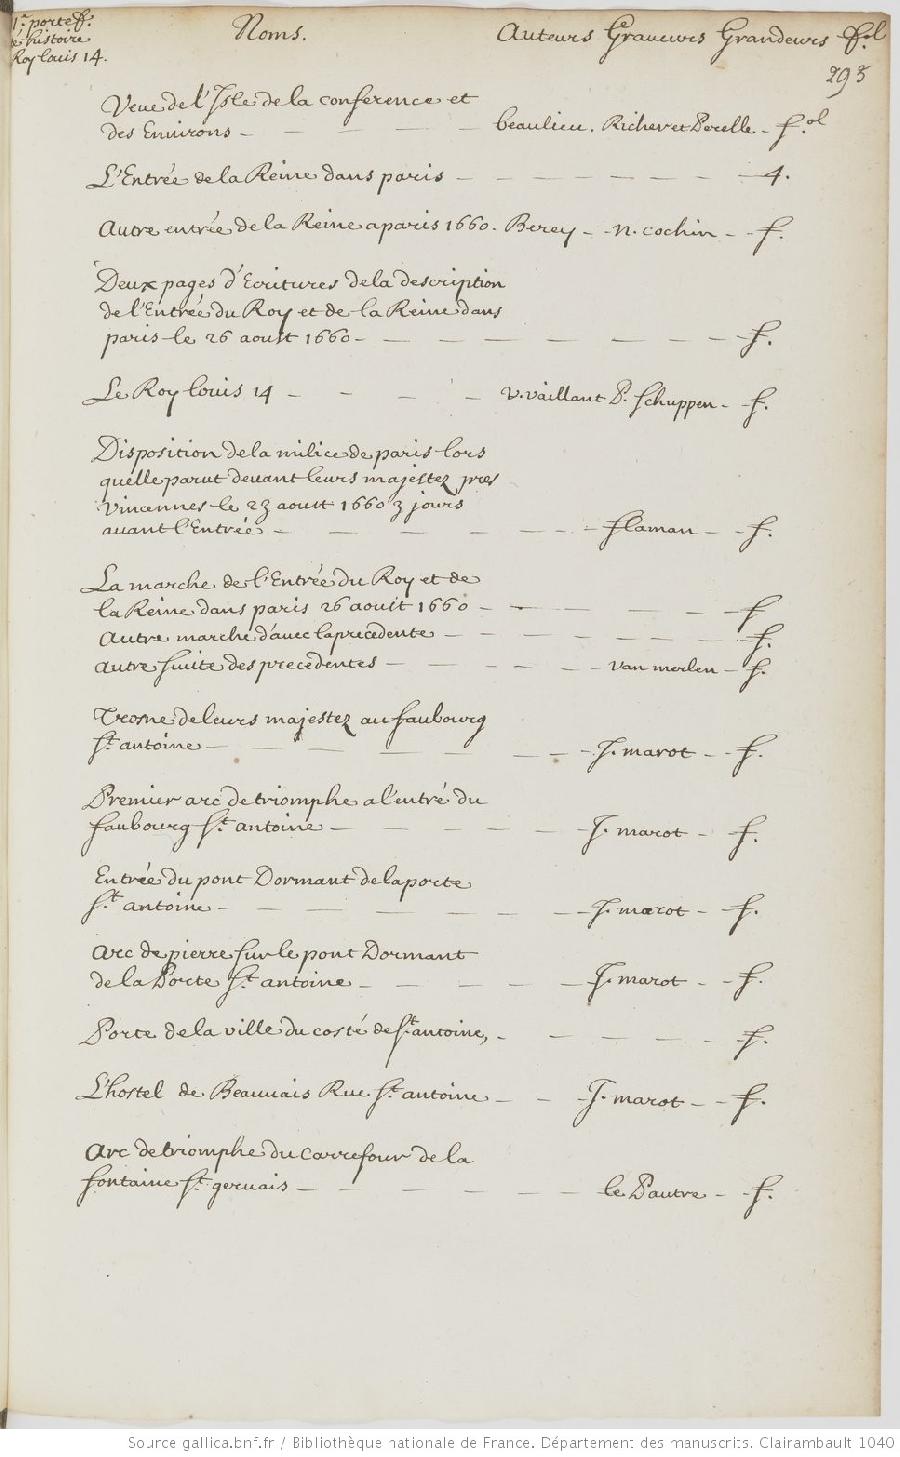 1.r portef.
é histoire
Roy louis 14.
Noms.
Auteurs Graveurs Grandeurs fol
293
Veue de l'Isle de la conference et
des Environs - - - - - beaulieu. Richer et Perelle - f.ol
L'Entrée de la Reine dans paris - - - - - - - 4.
Autre entrée de la Reine a paris 1660. Berey - - n. cochin - f.
Deux pages d'Ecritures de la description
de l'Entrée du Roy et de la Reine dans
paris le 26 aoust 1660 - - - - - - - - f.
Le Roy louis 14 - - - - v. vaillant P. Schuppen - f.
Disposition de la milice de paris lors
quelle parut devant leurs majestez pres
Vincennes le 23 aoust 1660 3 jours
avant l'Entrée - - - - - - flaman - f.
La marche de l'Entrée du Roy et de
la Reine dans paris 26 aoust 1660 - - - - - f
Autre marche d'avec la precedente - - - - - - - f.
autre suite des precedentes - - - - - van merlen - f.
Trosne de leurs majestez au faubourg
St. antoine - - - - - - - J. marot - f.
Premier arc de triomphe a l'entré du
faubourg St. antoine - - - - - J. marot - f.
Entrée du pont Dormant de la porte
St. antoine - - - - - - J. marot - f.
Arc de pierre sur le pont Dormant
de la Porte St. antoine - - - - - J. marot - f.
Porte de la ville du costé de St. antoine, - - - - - f.
L'hostel de Beauvais Rue St. antoine - - J. marot - f.
Arc de triomphe du carrefour de la
fontaine St. gervais - - - - - - le Pautre - f.
Source gallica.bnf.fr / Bibliothèque nationale de France. Département des manuscrits. Clairambault 1040